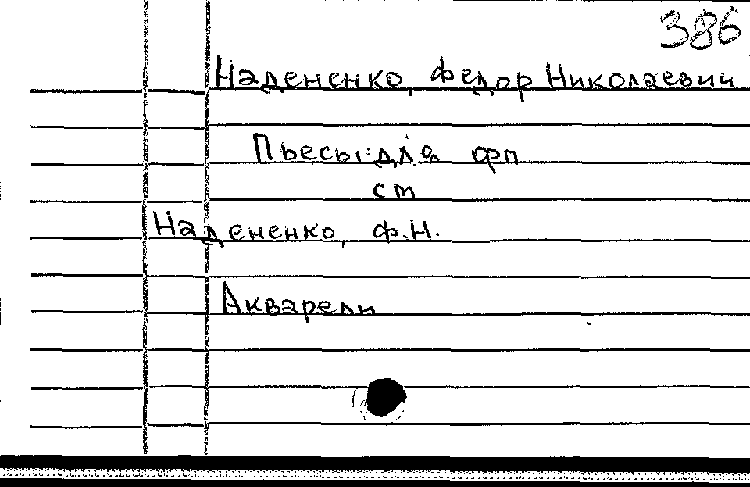 386
Надененко, Федор Николаевич
Пьесы для фп
см
Надененко, Ф.Н.
Акварели